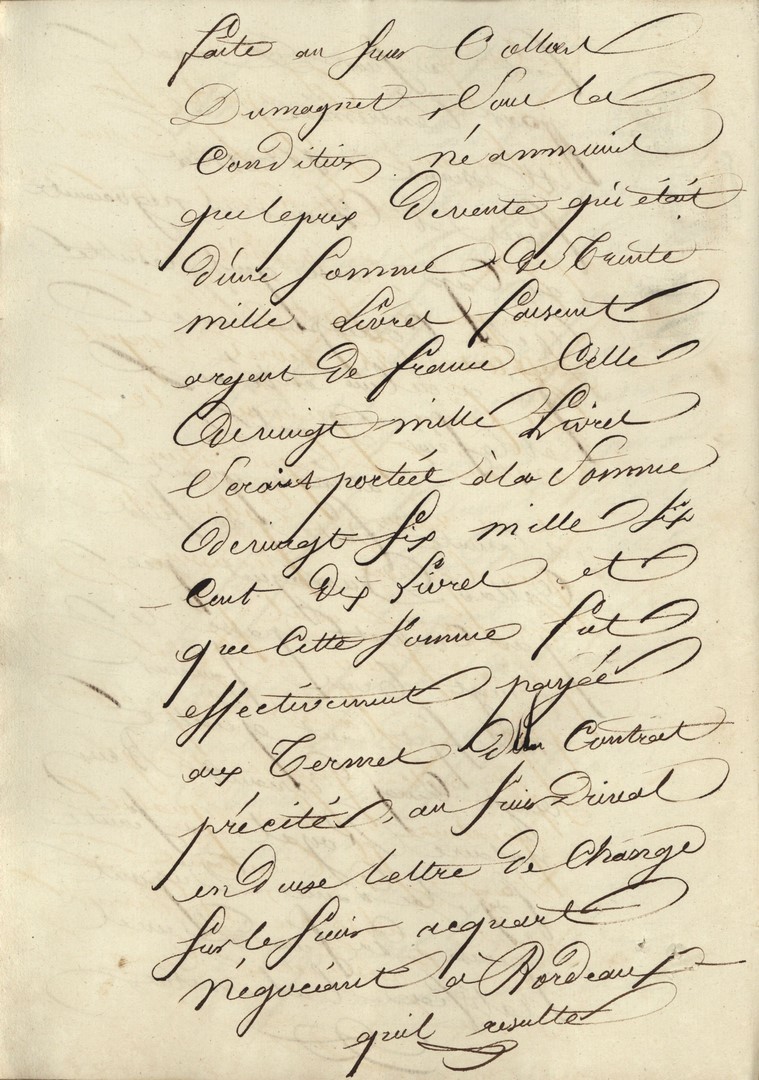 faite au sieur Collart
Dumagnet, Sous la
Condition néammoins
que le prix de vente qui était
d'une Somme de Trente
mille Livres faisant
argent de france Celle
de vingt mille Livres
Serait portée à la Somme
de vingt six mille six
Cent dix livres et
que Cette Somme fut
effectivement payée
aux Termes du Contrat
précité, au sieur
en Lettre de Change
sur le sieur acquart
Négociant à Bordeaux
qu'il resulte